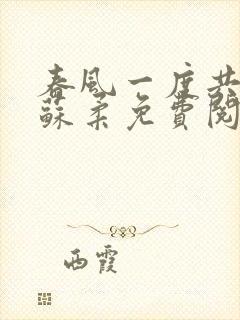 春風一度共
蘇柔免費閱
西霞